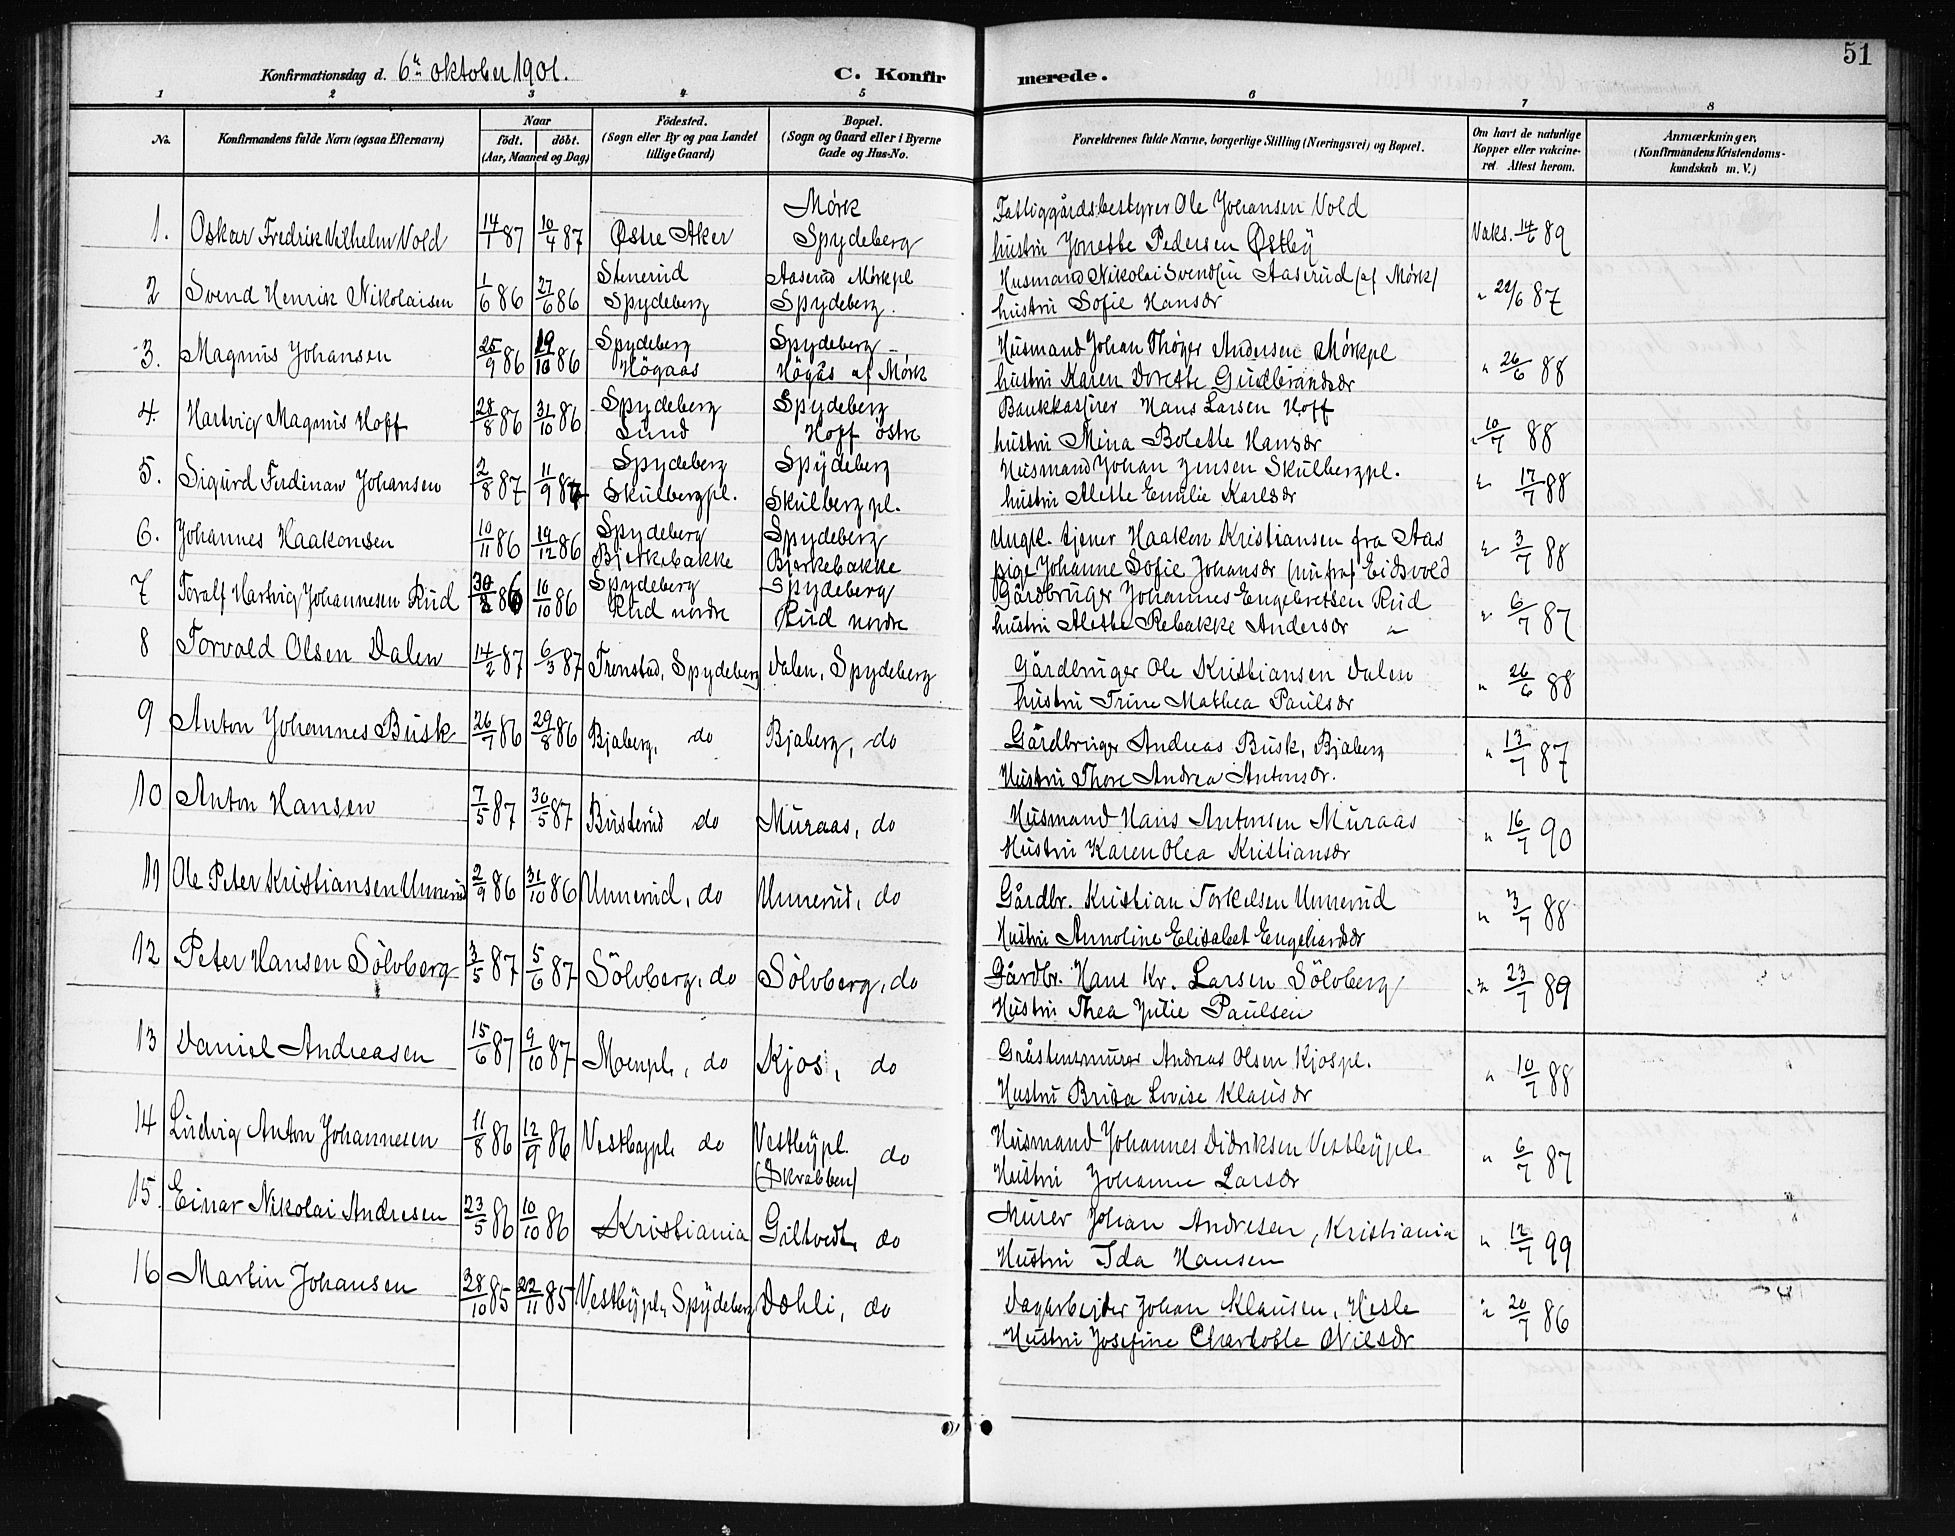 51
Konfirmationsdag d. 6te oktober 1901. C. Konfirmerede.
1 2 3 4 5 6 7 8
No. Konfirmandens fulde Navn (ogsaa Efternavn) Naar født. døbt. (Aar, Maaned og Dag) Fødested. (Sogn eller By og paa Landet tillige Gaard) Bopæl. (Sogn og Gaard eller i Byerne Gade og Hus-No. Forældrenes fulde Navne, borgerlige Stilling (Næringsvei) og Bopæl. Om havt de naturlige Kopper eller vakcineret Attest herom. Anmærkninger, (Konfirmandens Kristendomskundskab m. V.)
1. Oskar Fredrik Vilhelm Vold 14/1 87 10/4 87 Østre Aker Mörk Spydeberg Fattiggårdsbestyrer Ole Johansen Vold
hustru Jonette Pedersen Østby Vaks. 14/6 89
2 Svend Henrik Nikolaisen 1/6 86 27/6 86 Stenerud Spydeberg Aaserud Mörkpl Spydeberg. Husmand Nikolai Svendsen Aaserud (af Mørk)
hustru Sofie Hansdr " 22/6 87
3. Magnus Johansen 25/9 86 19/10 86 Spydeberg Högaas Spydeberg Högås af Mörk Husmand Johan Thöger Andersen Mörkpl
hustru Karen Dorette Gudbrandsdr " 26/6 88
4. Hartvig Magnus Hoff 28/8 86 31/10 86 Spydeberg Lund Spydeberg Hoff östre Bankkasserer Hans Larsen Hoff
hustru Mina Bolette Hansdr " 10/7 88
5. Sigurd Ferdinan Johansen 2/8 87 11/9 87 Spydeberg Skulbergpl. Spydeberg Skulberg pl. Husmand Johan Jensen Skulbergpl.
hustru Alette Emilie Karlsdr " 17/7 88
6. Johannes Haakonsen 10/11 86 19/12 86 Spydeberg Bjerkebakke Spydeberg Bjerkebakke Ungk. tjener Haakon Kristiansen fra Aas
pige Johanne Sofie Johansdr (nu fra) Eidsvold " 3/7 88
7 Toralf Hartvig Johannesen Rud 30/8 86 10/10 86 Spydeberg Rud nordre Spydeberg Rud nordre Gårdbruger Johannes Engebretsen Rud
hustru Alette Rebakke Andersdr " " 6/7 87
8 Torvald Olsen Dalen 14/2 87 6/3 87 Tronstad, Spydeberg Dalen, Spydeberg Gårdbruger Ole Kristiansen Dalen
hustru Trine Mathea Paulsdr " 26/6 88
9 Anton Johannes Busk 26/7 86 29/8 86 Bjaberg, do Bjaberg, do Gårdbruger Andreas Busk, Bjaberg
Hustru Thore Andrea Antonsdr. " 13/7 87
10 Anton Hansen 7/5 87 30/5 87 Busterud do Muraas, do Husmand Hans Antonsen Muraas
Hustru Karen Olea Kristiansdr " 16/7 90
11 Ole Peter Kristiansen Unnerud 2/9 86 31/10 86 Unnerud, do Unnerud, do Gårdbr. Kristian Torkelsen Unnerud
Hustru Annoline Elisabet Engehardsdr " 3/7 88
12 Peter Hansen Sölvberg 3/5 87 5/6 87 Sölvberg, do Sölvberg, do Gårdbr. Hans Kr. Larsen Sölvberg
Hustru Thea Julie Paulsen " 23/7 89
13 Daniel Andreasen 15/6 87 9/10 87 Moenpl., do Kjos, do Gråstensmurer Andreas Olsen Kjospl.
Hustru Brita Lovise Klausdr " 10/7 88
14 Ludvig Anton Johannesen 11/8 86 12/9 86 Vestbypl. do Vestbypl. (Skrabben) do Husmand Johannes Didriksen Vestbypl.
Hustru Johanne Larsdr " 6/7 87
15. Einar Nikolai Andresen 23/5 86 10/10 86 Kristiania Giltvedt, do Murer Johan Andresen, Kristiania
Hustru Ida Hansen " 12/7 99
16 Martin Johansen 28/10 85 22/11 85 Vestbypl, Spydeberg Dæhli, do Dagarbejder Johan Klausen, Hesle
Hustru Josefine Charlotte Nilsdr " 20/7 86